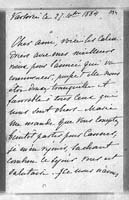 Varsovie le 27 Xbre 1884
Cher ami, voici les Calen
driers avec mes meilleurs
vœux pour l'année qui va
commencer, puisse-t-elle vous
être douce, tranquille et
favorable à tous ceux que
vous sont chers. Marie
me mande que vous comptez
bientôt partir pour Cannes,
je m'en réjouis, sachant
combien le séjour vous est
salutaire. J'ai vous